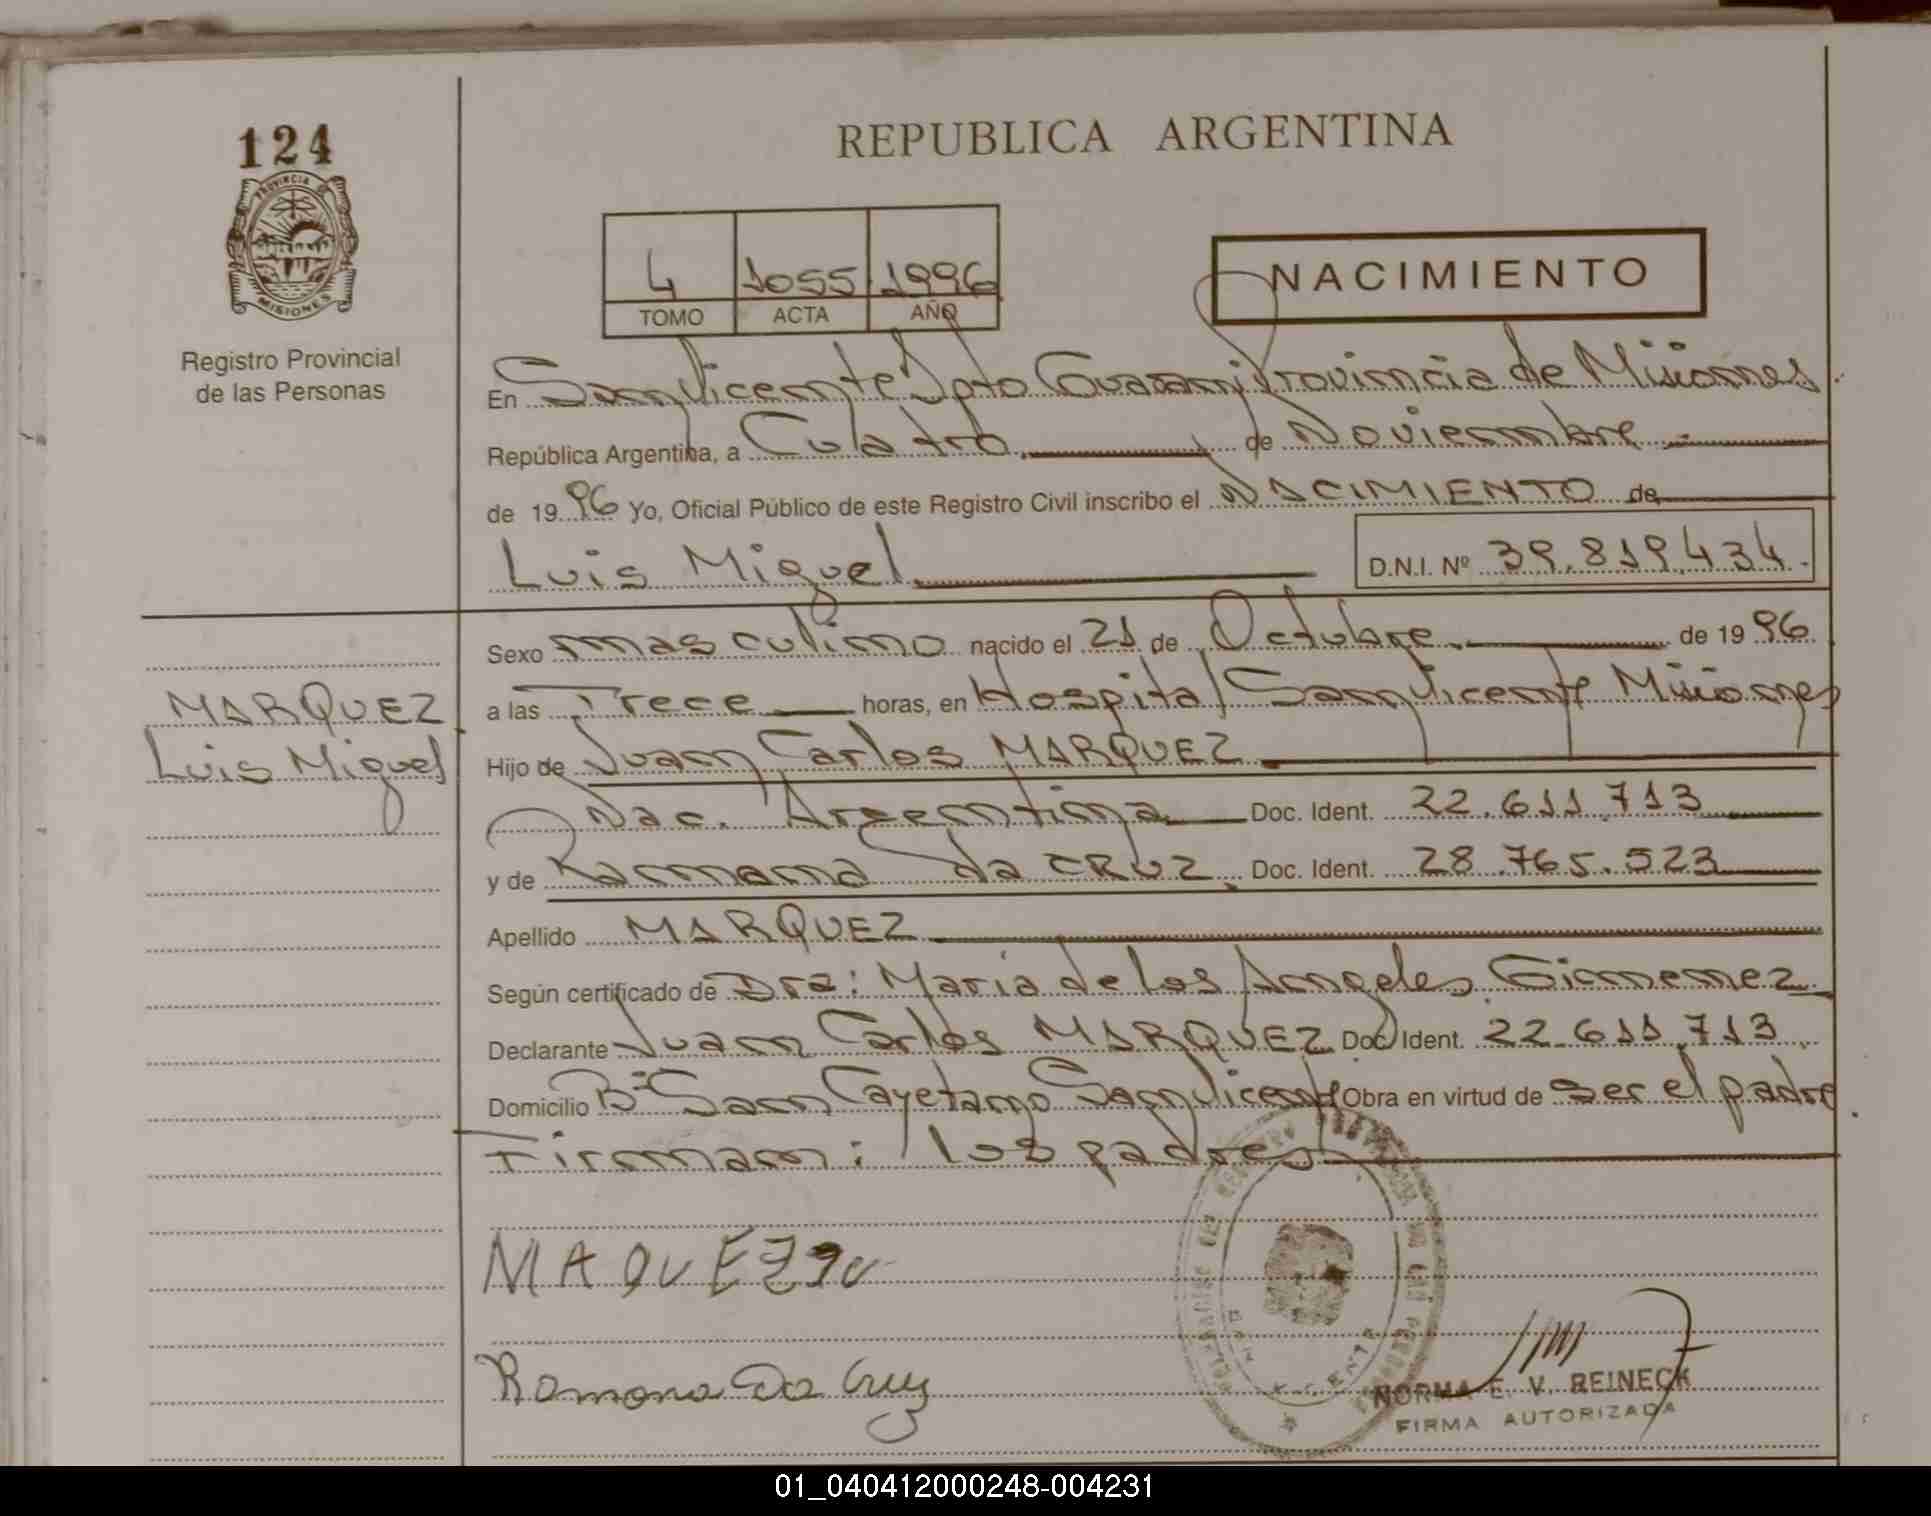 124
PROVINCIA DE
MISIONES
Registro Provincial
de las Personas
REPUBLICA ARGENTINA
4 1055 1996
TOMO ACTA AÑO
NACIMIENTO
En San Vicente Dpto Guarani Provincia de Misiones.
República Argentina, a Cuatro. de Noviembre
de 1996 Yo, Oficial Público de este Registro Civil inscribo el NACIMIENTO de
Luis Miguel D.N.I. Nº 39.819.434.
MARQUEZ
Luis Miguel
Sexo masculino nacido el 21 de Octubre de 1996.
a las Trece horas, en Hospital San Vicente Misiones
Hijo de Juan Carlos MARQUEZ
Nac. Argentina Doc. Ident. 22.611.713
y de Ramona Da CRUZ, Doc. Ident. 28.765.523
Apellido MARQUEZ
Según certificado de Dra: Maria de los Angeles Gimenez
Declarante Juan Carlos MARQUEZ Doc Ident. 22.611.713.
Domicilio Bº San Cayetano San Vicente Obra en virtud de ser el padre.
Firman: los padres
MAQUEZ
Romona Da Cruz
NORMA E. V. REINECK
FIRMA AUTORIZADA
01_040412000248-004231